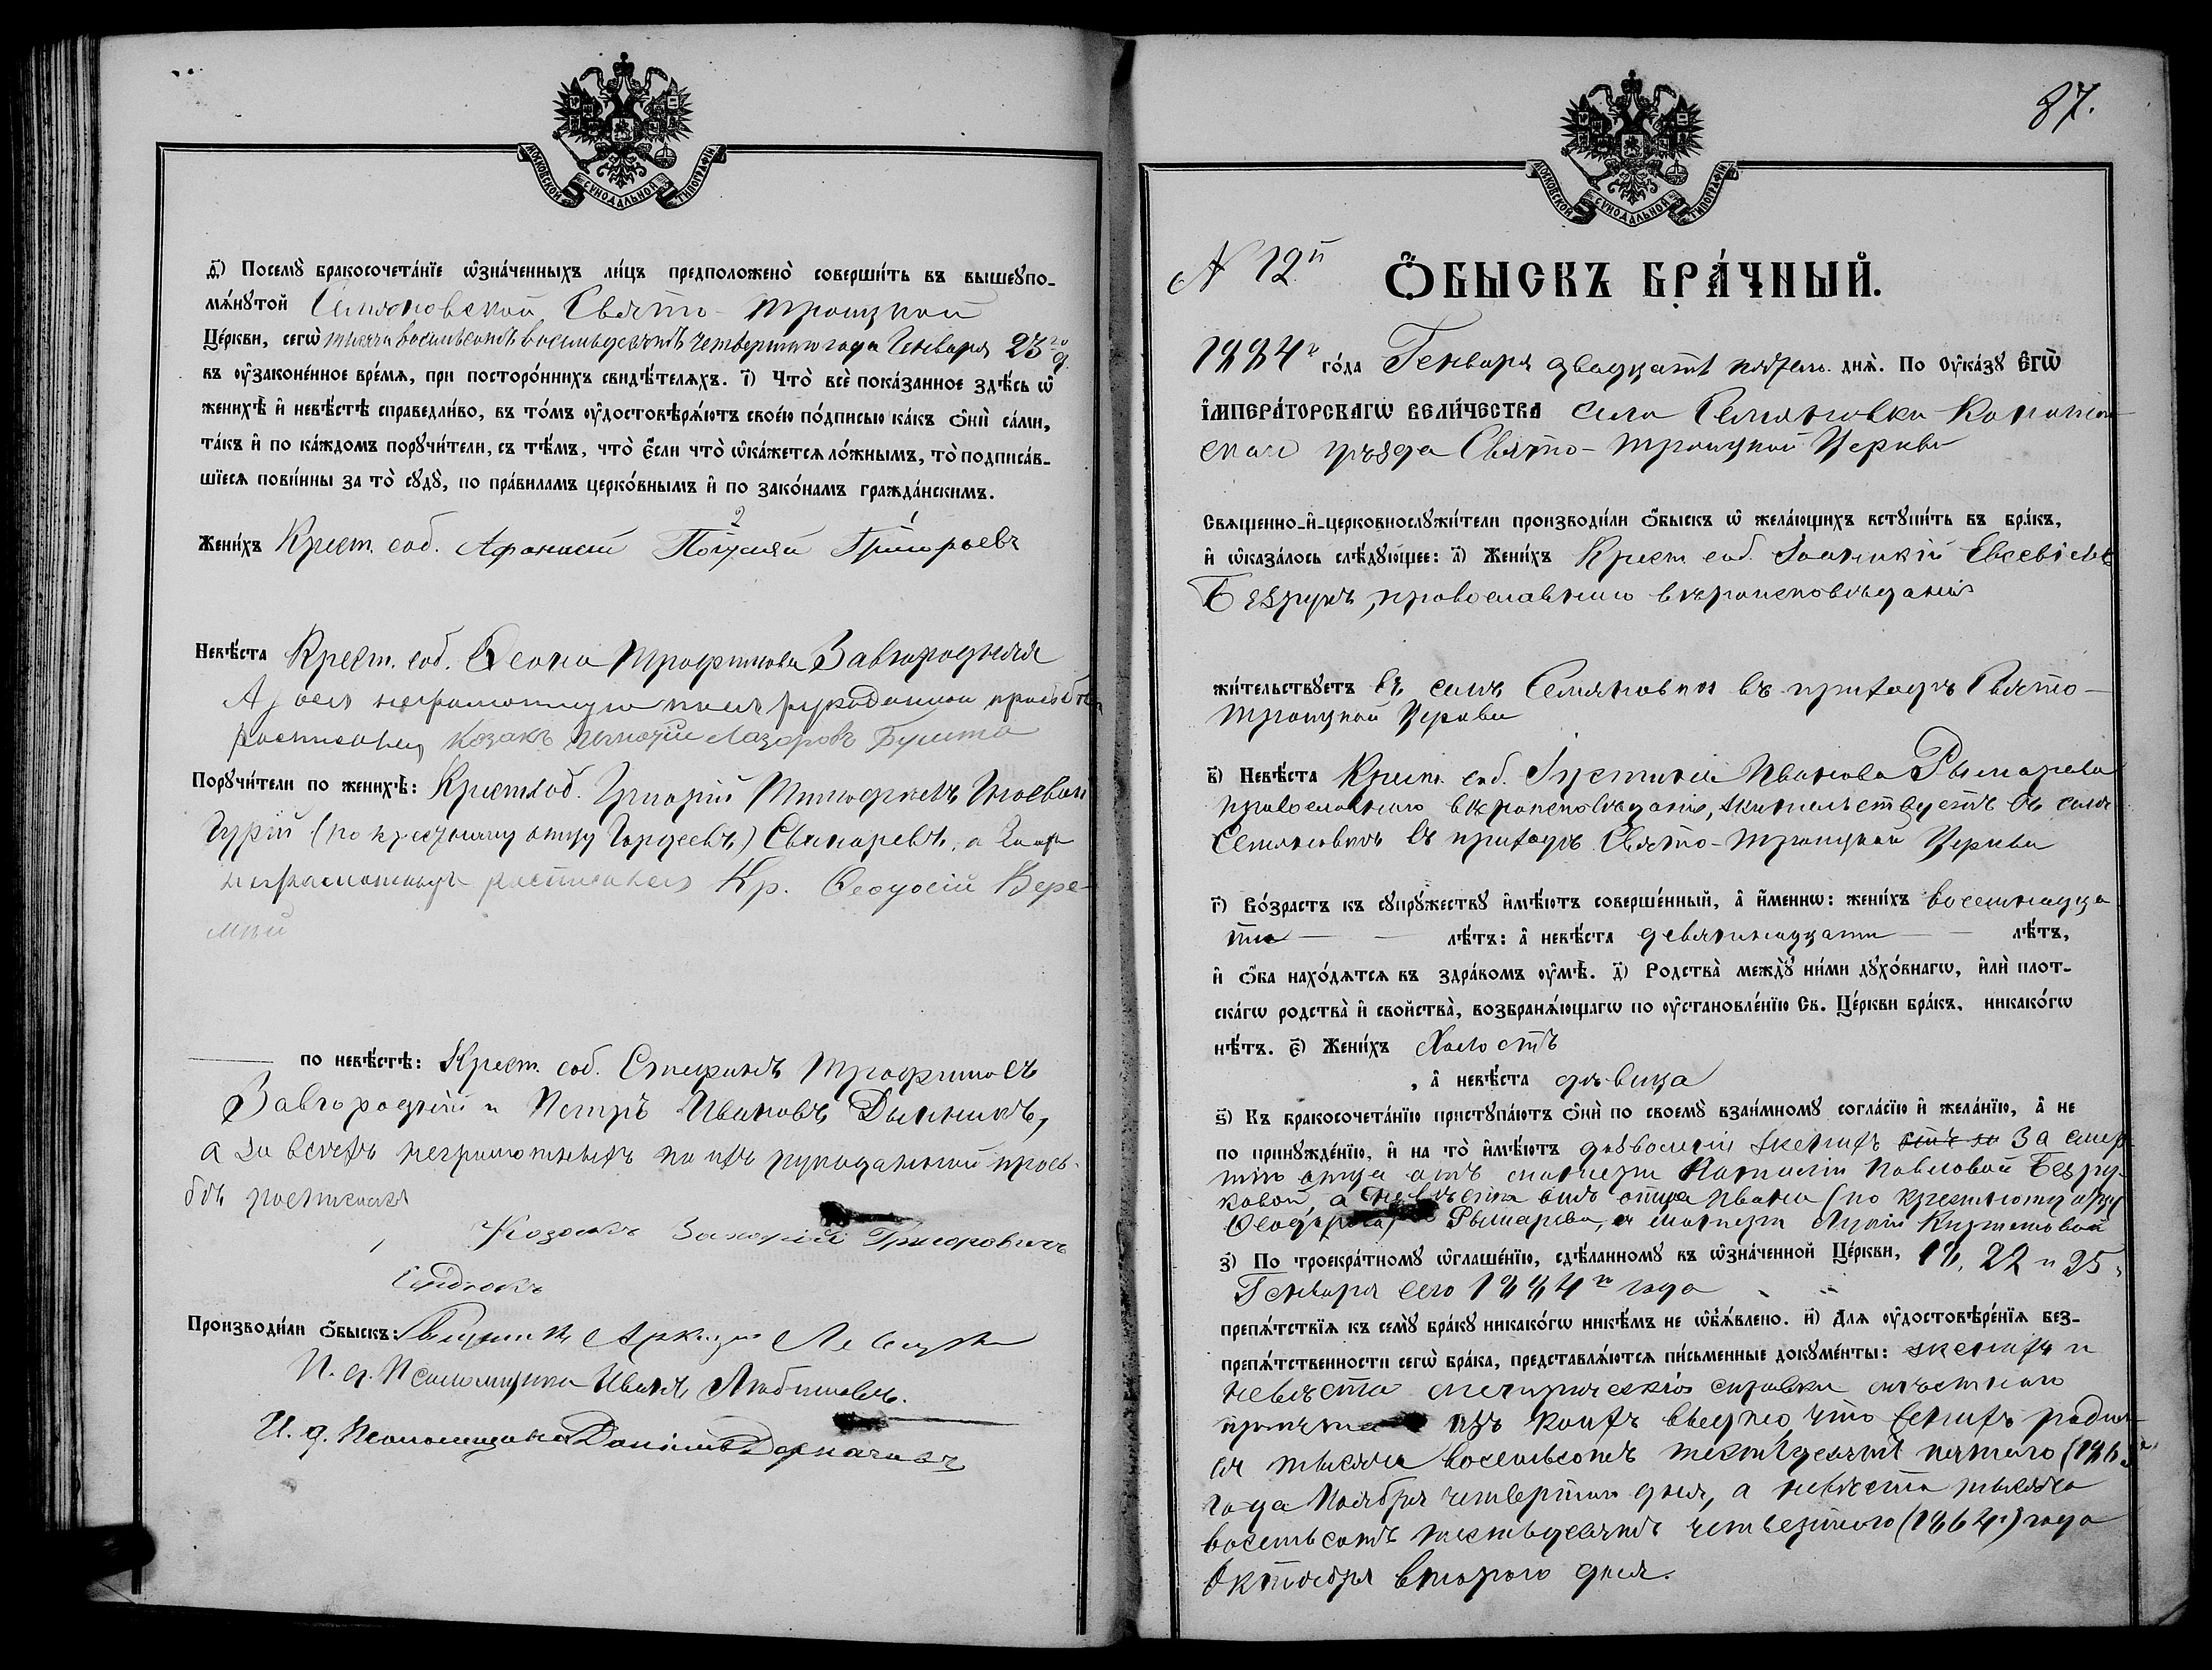 МОСКОВСКОЙ СУНОДАЛЬНОЙ ТИПОГРАФІИ
д҃) Посемꙋ̀ бракосочета́нїе ѡ҆зна́ченныхъ ли́цъ предположено̀ соверши́ть въ вышеꙋпо-
мѧ́нꙋтой Семяновской Свято-Троицкой
Це́ркви, сегѡ̀ тысяча восемьсотъ восемьдесятъ четвертаго года Генваря 23го д.
въ ᲂу҆законе́нное вре́мѧ, при посторо́ннихъ свидѣ́телѧхъ. і҃) Что̀ всѐ пока́занное здѣ́сь ѡ҆
женихѣ̀ и҆ невѣ́стѣ справедли́во, въ то́мъ ᲂу҆достовѣрѧ́ютъ свое́ю по́дписью ка́къ ѻ҆нѝ са́ми,
та́къ и҆ по ка́ждомъ порꙋчи́тели, съ тѣ́мъ, что̀ є҆́сли что̀ ѡ҆ка́жетсѧ ло́жнымъ, то̀ подписа́в-
шїесѧ пови́нны за то̀ сꙋдꙋ̀, по пра́виламъ церко́внымъ и҆ по зако́намъ гражда́нскимъ.
2 1
Жени́хъ Крест. соб. Афанасій Григорьевъ
Невѣ́ста Крест. соб. Трофимова Завгородняя
А за нея неграмотную по ея рукоданной прозьбѣ
росписался козакъ Лазаровъ
Порꙋчи́тели по женихѣ̀: Крест. соб. Григорій
Гурій (по крестному отцу Гордеевъ) а за
неграмотныхъ росписался Кр. Ѳеодосій Вере-
мѣй
по невѣ́стѣ: Крест. соб. Стефанъ Трофимовъ
Завгородній и Петръ Ивановъ Дынникъ,
а за всѣхъ неграмотныхъ по ихъ рукоданной прозь-
бѣ росписался
Козакъ Григоровичъ
Сердюкъ
Производи́ли ѻ҆́быскъ: Священникъ Левицкій
И. д. Псаломщика Иванъ Любимовъ.
И. д. Псаломщика Даніилъ
87.
МОСКОВСКОЙ СУНОДАЛЬНОЙ ТИПОГРАФІИ
N 12й
ѺБЫСКЪ БРА́ЧНЫЙ.
1884го го́да Генваря двадцать пятаго днѧ̀. По Оу҆ка́зꙋ Є҆ГѠ̀
І҆МПЕРА́ТОРСКАГѠ ВЕЛИ́ЧЕСТВА села Семяновки
скаго уѣзда Свято-Троицкой Церкви
Свѧщенно-и҆-церковнослꙋжи́тели производи́ли ѻ҆́быскъ ѡ҆ жела́ющихъ встꙋпи́ть въ бра́къ,
и҆ ѡ҆каза́лось слѣ́дꙋющее: а҃) Жени́хъ Крест. соб. Іоаникій Евсевіевъ
Безрукъ, православнаго вѣроисповѣданія
жи́тельствꙋетъ въ селѣ Семяновкѣ въ приходѣ Свято-
Троицкой Церкви
в҃) Невѣ́ста Крест. соб. Іустинія Иванова Рымарева
православнаго вѣроисповѣданія, жительствуетъ въ селѣ
Семяновкѣ въ приходѣ Свято-Троицкой Церкви
г҃) Во́зрастъ къ сꙋпрꙋ́жествꙋ и҆мѣ́ютъ соверше́нный, а҆ и҆́меннѡ: жени́хъ восемнадца
ти лѣ́тъ: а҆ невѣ́ста девятнадцати лѣ́тъ,
и҆ ѻ҆́ба нахо́дѧтсѧ въ здра́вомъ ᲂу҆мѣ̀. д҃) Родства̀ междꙋ̀ ни́ми дꙋхо́внагѡ, и҆лѝ плот-
ска́гѡ родства̀ и҆ свойства̀, возбранѧ́ющагѡ по ᲂу҆становле́нїю Св. Це́ркви бра́къ, никако́гѡ
нѣ́тъ. є҃) Жени́хъ холостъ
, а҆ невѣ́ста дѣвица
ѕ҃) Къ бракосочета́нїю пристꙋпа́ютъ ѻ҆нѝ по своемꙋ̀ взаи́мномꙋ согла́сїю и҆ жела́нїю, а҆ не
по принꙋжде́нїю, и҆ на то̀ и҆мѣ́ютъ дозволеніе женихъ за смер
тію отца отъ матери Наталіи Павловой Безру-
ковой, а невѣста отъ отца Ивана (по крестному отцу
Рымарева, и матери Лукіи
з҃) По троекра́тномꙋ ѡ҆глаше́нїю, сдѣ́ланномꙋ въ ѡ҆зна́ченной Це́ркви, 18, 22 и 25,
Генваря сего 1884го года
препѧ́тствїѧ къ семꙋ̀ бра́кꙋ никако́гѡ никѣ́мъ не ѡ҆б̾ѧ́влено. и҃) Для ᲂу҆достовѣре́нїѧ без-
препѧ́тственности сегѡ̀ бра́ка, представлѧ́ютсѧ пи́сьменные докꙋме́нты: женихъ и
невѣста метрическія справки мѣстнаго
причта изъ коихъ видно, что женихъ родил-
ся тысяча восемьсотъ шестьдесятъ пятаго (1865го
года Ноября четвертаго дня, а невѣста тысяча
восемьсотъ шестьдесятъ четвертаго (1864го) года
Октября втораго дня.